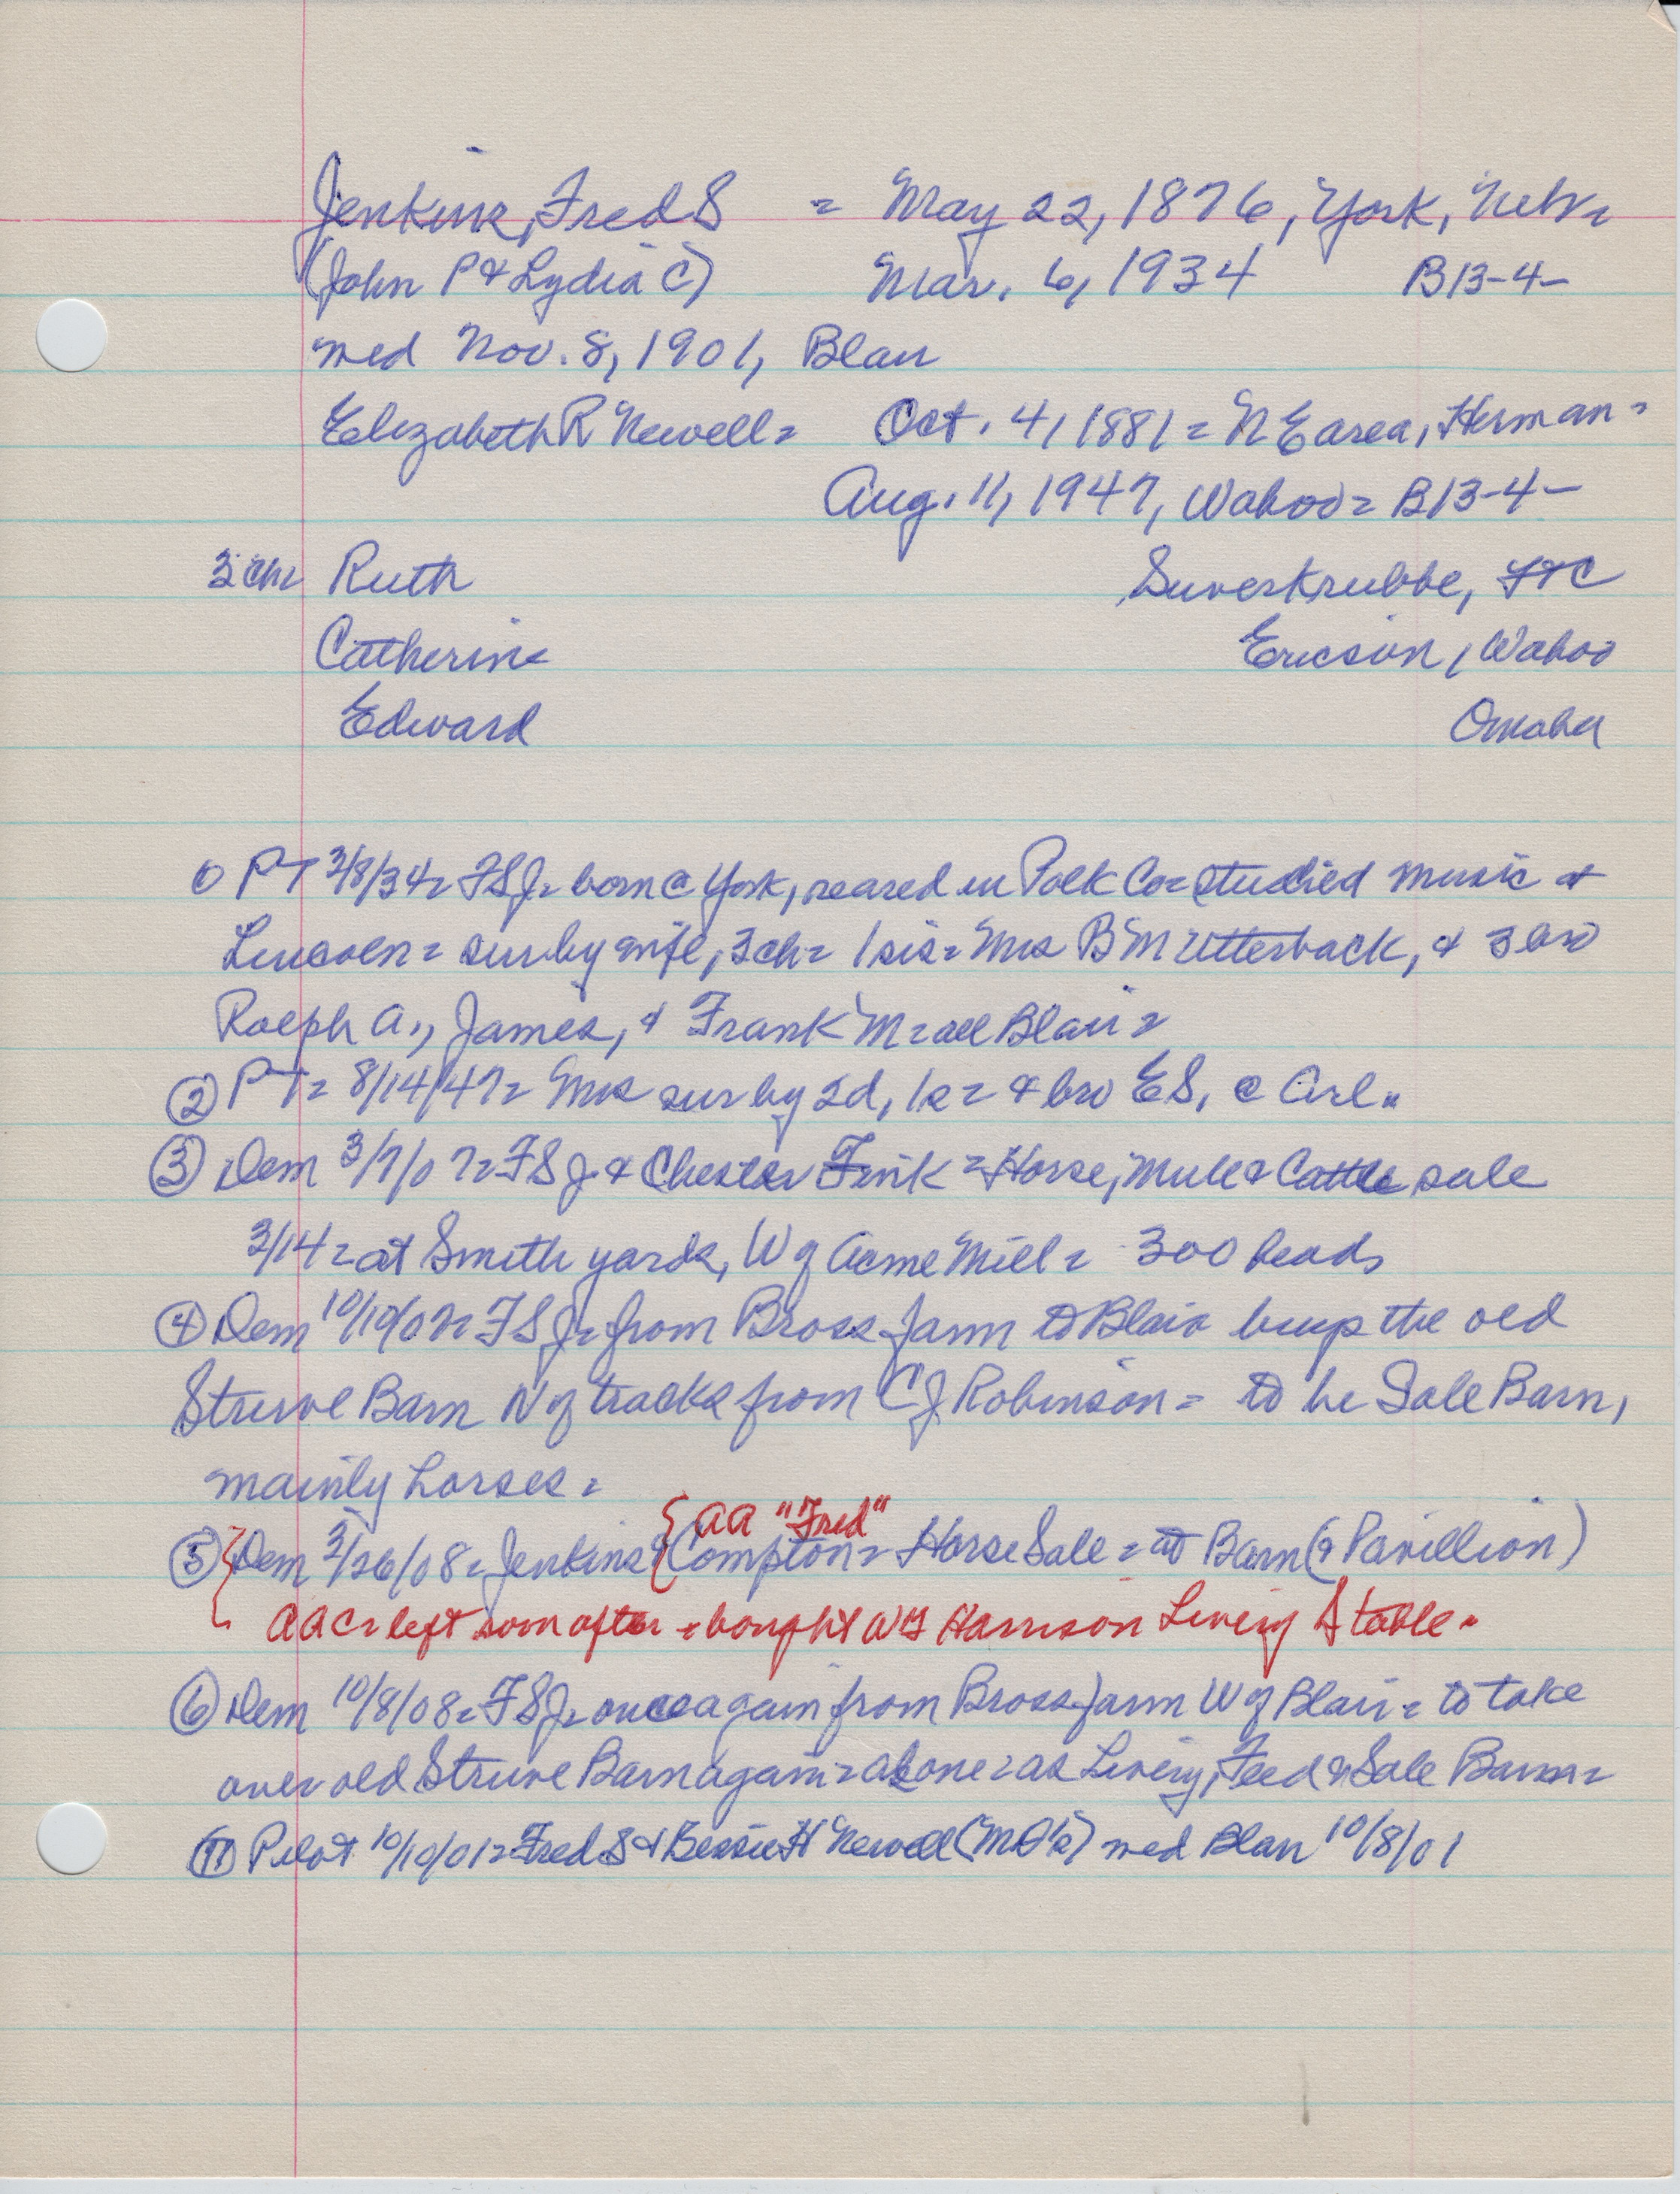 Jenkins, Fred S = May 22, 1876, York, Nebr=
(John P & Lydia C) Mar. 6, 1934 B13-4-
med Nov. 8, 1901, Blair
Elizabeth R Newell= Oct. 4, 1881 = NE area, Herman=
Aug. 11, 1947, Wahoo= B13-4-
3 ch= Ruth Suverkrubbe,
Catherine Ericson, Wahoo
Edward Omaha
① PT 3/8/34= FSJ= born @ York, reared in Polk Co= studied music at
Lincoln= sur by wife, 3 ch= 1 sis= Mrs B M Utterback, & 3 bro
Ralph A., James, & Frank M= all Blair=
② PT= 8/14/47= Mrs sur by 2d, 1s= & bro ES, @ Arl=
③ Dem 3/7/07= FSJ & Chester Fink = Horse, Mule & Cattle sale
3/14= at Smith yards, W of Acme Mill= 300 heads
④ Dem 10/10/07= FSJ= from Bross farm to Blair buys the old
Struve Barn N of tracks from CJ Robinson= to be Sale Barn,
mainly horses=
{AA "Fred"
⑤ {Dem 3/26/08= Jenkins & {Compton= Horse Sale= at Barn (& Pavillion)
AAC= left soon after = bought WH Harrison Livery Stable=
⑥ Dem 10/8/08= FSJ= once again from Bross farm W of Blair= to take
over old Struve Barn again= alone= as Livery, Feed & Sale Barn=
⑦ Pilot 10/10/01= Fred S & Bessie H Newell med Blair 10/8/01